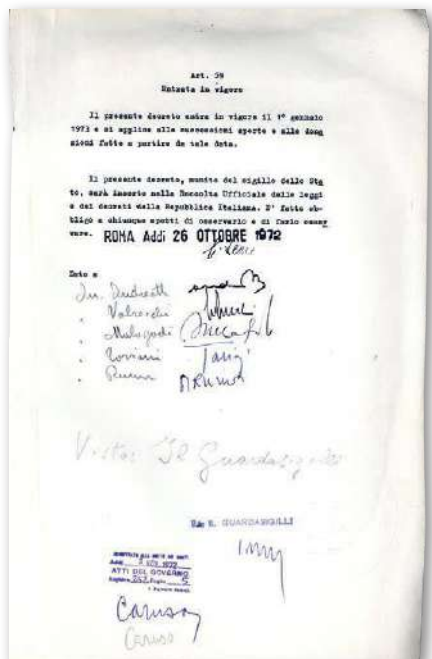 Art. 59
Entrata in vigore
Il presente decreto entra in vigore il 1° gennaio
1973 e si applica alle successioni aperte e alle dona
zioni fatte a partire da tale data.
Il presente decreto, munito del sigillo dello Sta
to, sarà inserto nella Raccolta Ufficiale delle leggi
e dei decreti della Repubblica Italiana. E' fatto ob-
bligo a chiunque spetti di osservarlo e di farlo osser
vare. ROMA Addì 26 OTTOBRE 1972
Dato a
Andreotti
Valsecchi
Malagodi
Taviani
Rumor
Visto: Il Guardasigilli
GUARDASIGILLI
ATTI DEL GOVERNO
Caruso
Caruso